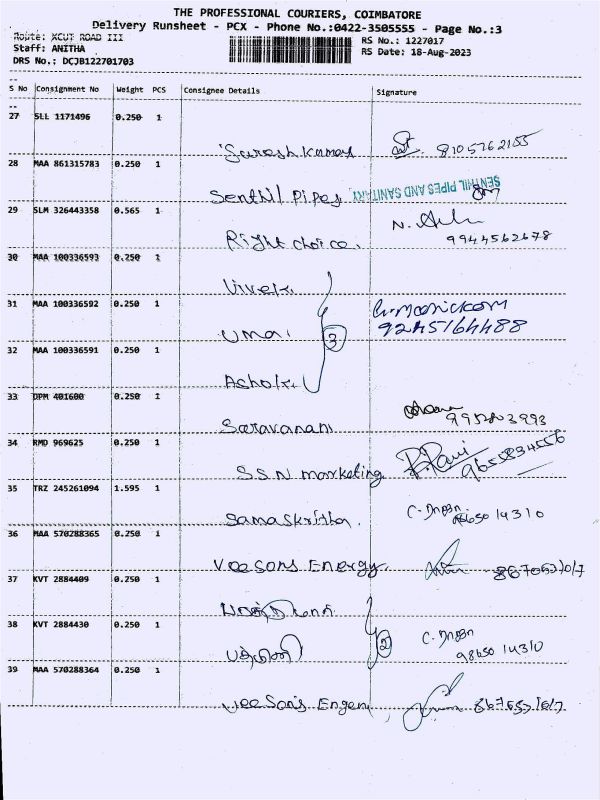 THE PROFESSIONAL COURIERS, COIMBATORE
Delivery Runsheet - PCX - Phone No.:0422-3505555 - Page No.:3
Route: XCUT ROAD III
RS No.: 1227017
Staff: ANITHA
RS Date: 18-Aug-2023
DRS No.: DCJB122701703
S No Consignment No Weight PCS Consignee Details Signature
27 SLL 1171496 0.250 1
Suresh Kumar 8105762155
28 MAA 861315783 0.250 1
Senthil Pipes SENTHIL PIPES AND SANITARY
29 SLM 326443358 0.565 1
Right choice. 9944562678
30 MAA 100336593 0.250 1
Vivek.
31 MAA 100336592 0.250 1
Uma. 3 9245164488
32 MAA 100336591 0.250 1
Ashok.
33 DPM 401600 0.250 1
Saravanan
34 RMD 969625 0.250 1
S.S.N marketing R. Ravi 9655834556
35 TRZ 245261094 1.595 1
Samaskritha.
36 MAA 570288365 0.250 1
Veesons Energy.
37 KVT 2884409 0.250 1
38 KVT 2884430 0.250 1
2 98650 14310
39 MAA 570288364 0.250 1